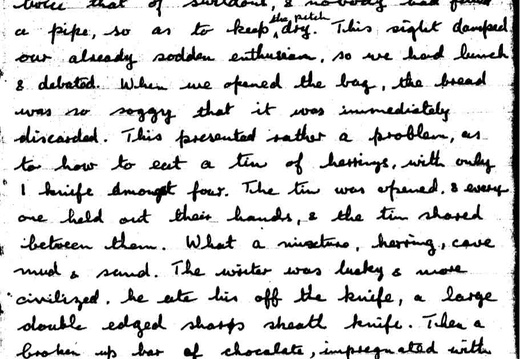 twice that of Swildons, & nobody had found
a pipe, so as to keep the pitch dry. This sight damped
our already sodden enthusiasm, so we had lunch
& debated. When we opened the bag, the bread
was so soggy that it was immediately
discarded. This presented rather a problem, as
to how to eat a tin of herrings, with only
1 knife amongst four. The tin was opened, & every
one held out their hands, & the tin shared
between them. What a mixture, herring, cave
mud & sand. The writer was lucky & more
civilized, he ate his off the knife, a large
double edged sharp sheath knife. Then a
broken up bar of chocolate, impregnated with